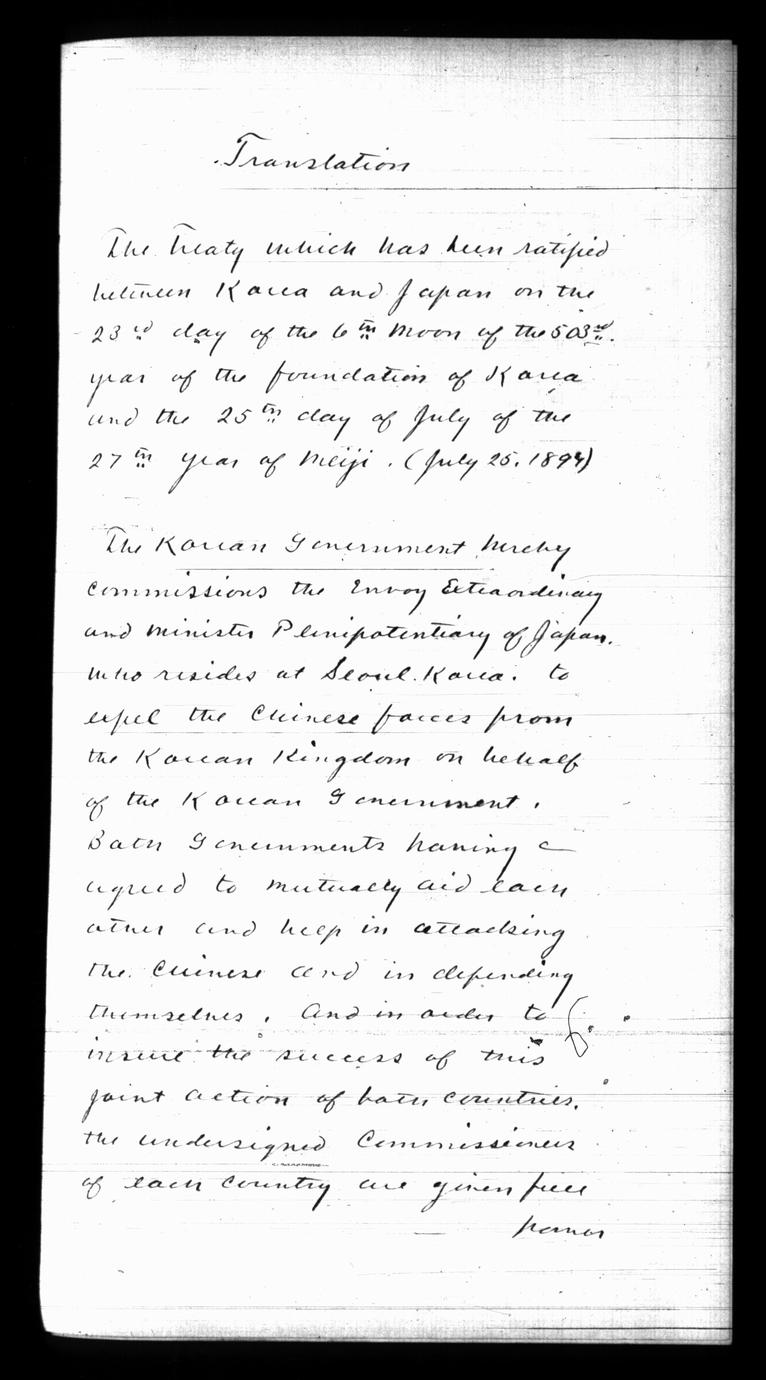 Translation
The Treaty which has been ratified
between Korea and Japan on the
23rd day of the 6th Moon of the 503rd.
year of the foundation of Korea
and the 25th day of July of the
27th year of Meiji. (July 25, 1894)
The Korean Government hereby
commissions the Envoy Extraordinary
and Minister Plenipotentiary of Japan.
who resides at Seoul. Korea. to
expel the Chinese forces from
the Korean Kingdom on behalf
of the Korean Government.
Both Governments having
agreed to mutually aid each
other and help in attacking
the Chinese and in defending
themselves. And in order to
insure the success of this
joint action of both countries.
the undersigned Commissioners
of each country are given full
power